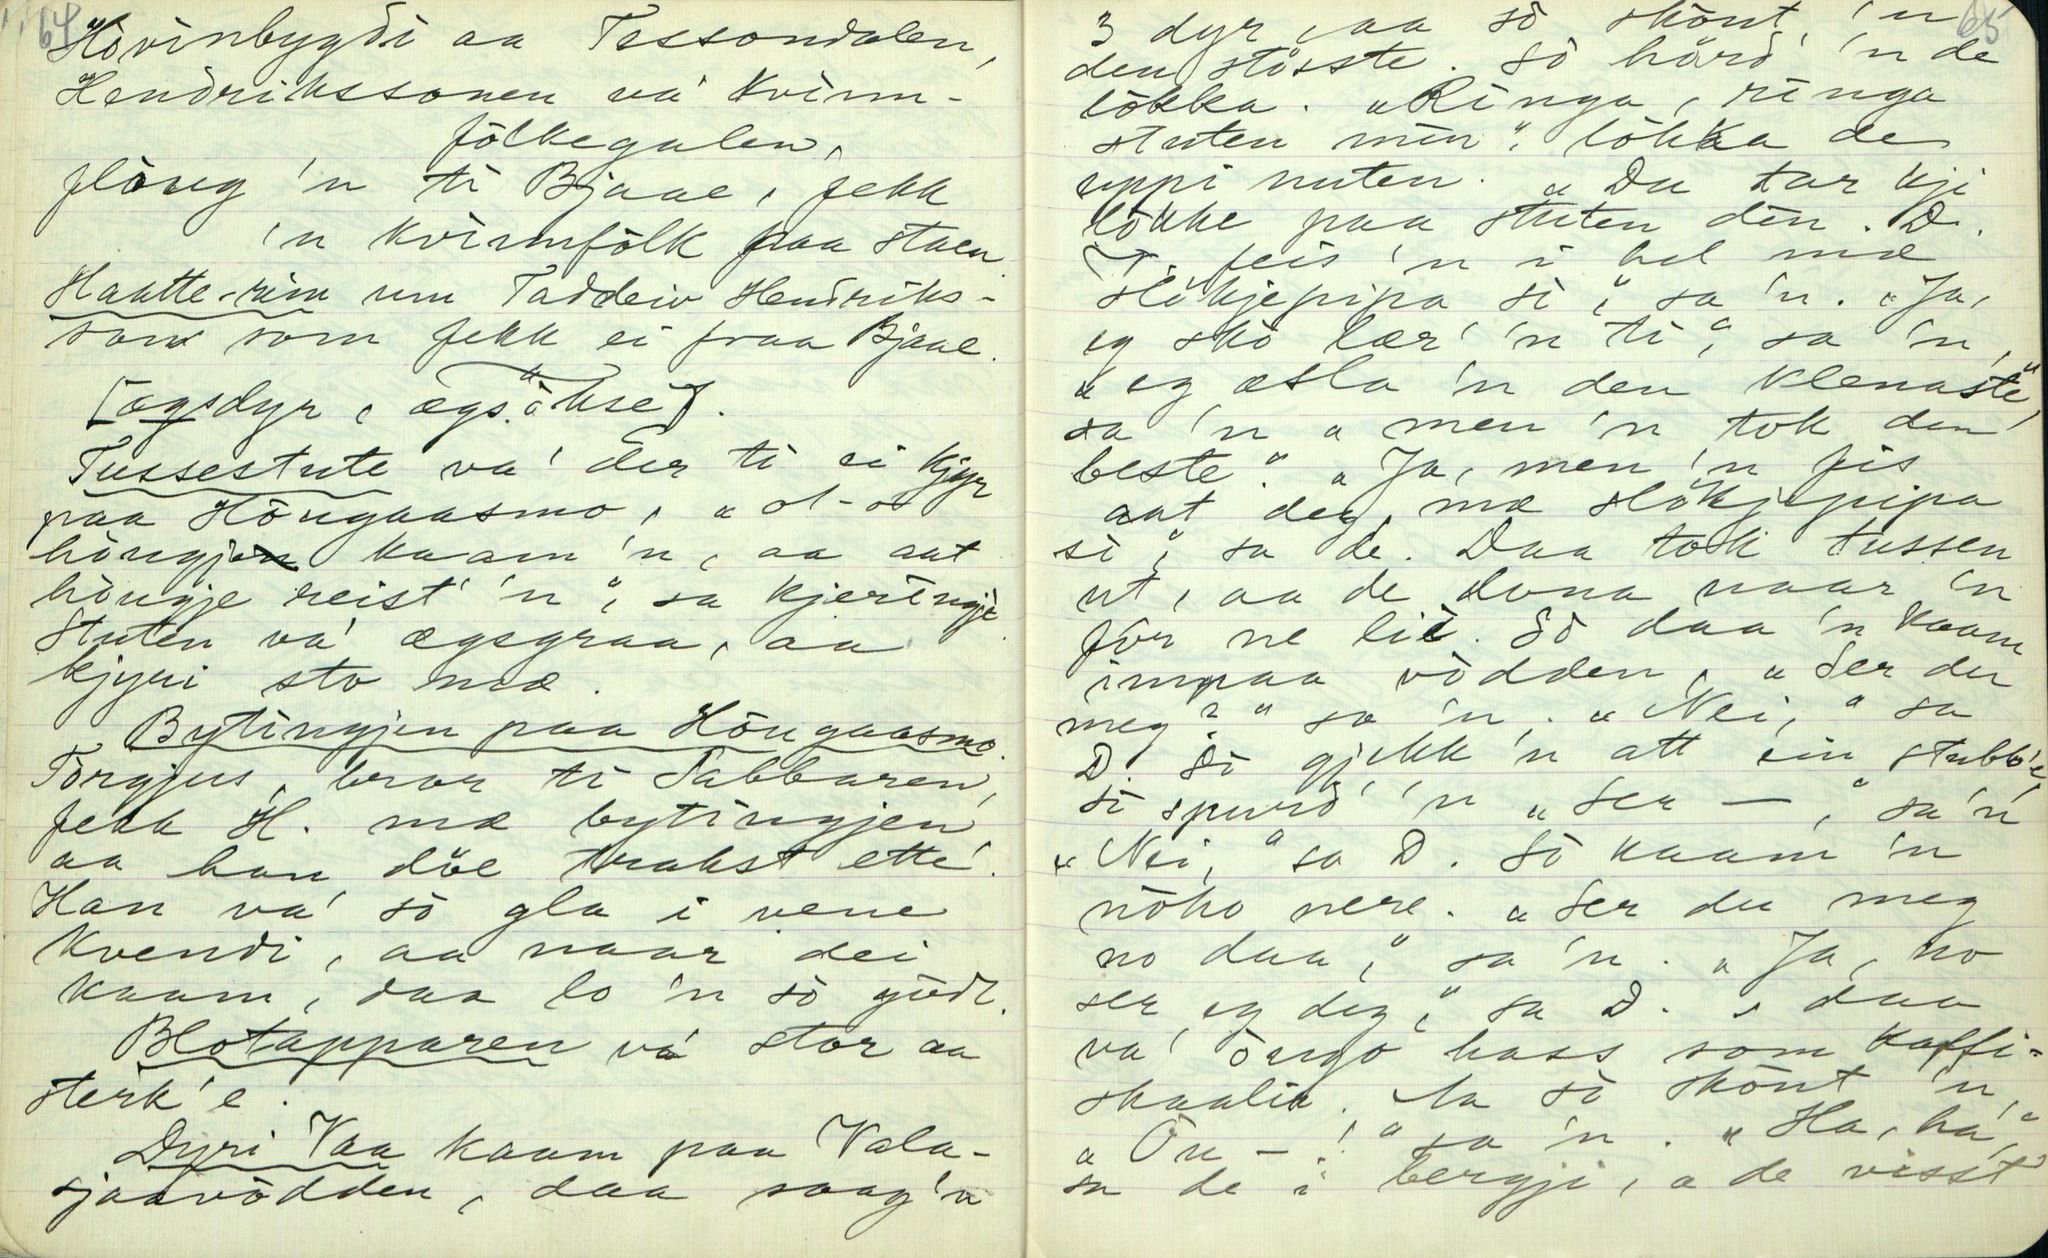 64
Hòvinbygdi aa Tessondalen,
Hendrikssonen va' kvinn-
fòlkegalen,
flöug 'n ti Bjaae, fekk
'n kvinnfòlk paa staen.
Haatte-rim um Taddeiv Hendriks-
son som fekk ei fraa Bjaae.
[ægsdyr, ægsökse].
Tussestute va' der ti ei kjyr
paa Höugaasmo, „
höugjen kaam 'n, aa aat
höugje reist' 'n", sa kjeringje.
Stuten va' ægsgraa, aa
kjyri sto mæ.
Bytingjen paa Höugaasmo.
Torgjus, bror ti Tabbaren,
fekk H. mæ bytingjen,
aa han döe trakst ette'.
Han va' sò gla i vene
kvendi, aa naar dei
kaam, daa lo 'n sò godt.
Blotapparen va stor aa
sterk'e.
Dyri Vaa kaam paa Vala-
sjaavòdden, daa saag'n
65
3 dyr, aa sò skönt 'n
den stösste. Sò hörd' 'n de
lòkka. „Ringa, ringa
stuten min", lòkka de
uppi nuten. „Du tar kji
lòkke paa stuten din. D.
V. feis 'n i hel mæ
slökjepipa si", sa 'n. „Ja,
eg sko lær' 'n ti", sa 'n,
„eg æsla 'n den klenaste",
sa 'n „men 'n tok den
beste." „Ja, men 'n fis
aat deg mæ slökjepipa
si", sa de. Daa tok tussen
ut, aa de duna naar 'n
fòr ne lii. Sò daa 'n kaam
innpaa vòdden, „Ser du
meg?" sa 'n. „Nei," sa
D. Sò gjekk 'n att ein stubb'e,
sò spurd' 'n „Ser —", sa'n
„Nei," sa D. Sò kaam 'n
nòko nere. „Ser du meg
no daa," sa 'n. „Ja, no
ser eg deg", sa D. daa
va' öugo hass som kaffi-
skaalir. Aa sò skönt 'n,
„On —!" sa 'n. „Ha, ha",
sa de i bergji, „de visst